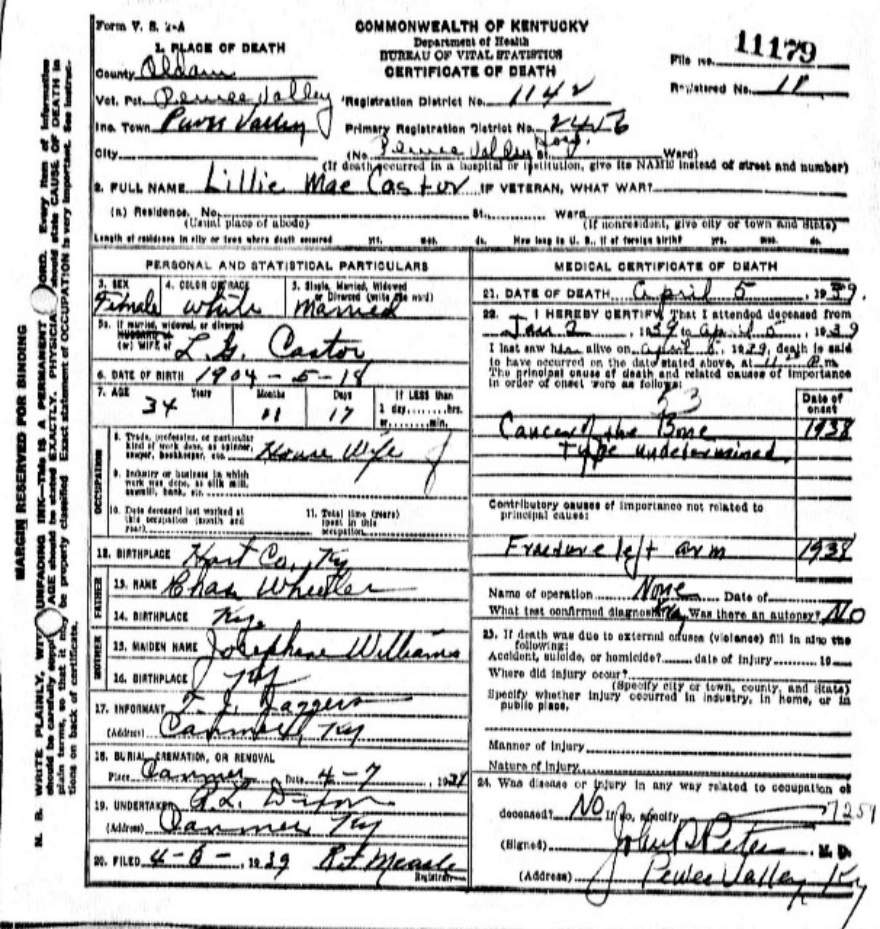 Form V. S. 1-A
COMMONWEALTH OF KENTUCKY
Department of Health
BUREAU OF VITAL STATISTICS
CERTIFICATE OF DEATH
File No. 11179
Registered No. 18
1. PLACE OF DEATH
County Oldham
Vot. Pct. Pewee Valley Registration District No. 1142
Inc. Town Pewee Valley Primary Registration District No. 2456
City (No. Pewee Valley Hosp. St. Ward)
(If death occurred in a hospital or institution, give its NAME instead of street and number)
2. FULL NAME Lillie Mae Castor IF VETERAN, WHAT WAR?
(a) Residence. No. St. Ward
(Usual place of abode) (If nonresident, give city or town and State)
Length of residence in city or town where death occurred yrs. mos. ds. How long in U. S., if of foreign birth? yrs. mos. ds.
PERSONAL AND STATISTICAL PARTICULARS
3. SEX 4. COLOR OR RACE 5. Single, Married, Widowed
or Divorced (write the word)
Female White Married
5a. If married, widowed, or divorced
HUSBAND of
(or) WIFE of L. G. Castor
6. DATE OF BIRTH 1904-5-18
7. AGE Years Months Days If LESS than
34 11 17 1 day, hrs.
or min.
OCCUPATION
8. Trade, profession, or particular
kind of work done, as spinner,
sawyer, bookkeeper, etc. House Wife
9. Industry or business in which
work was done, as silk mill,
sawmill, bank, etc.
10. Date deceased last worked at
this occupation (month and
year)
11. Total time (years)
spent in this
occupation
12. BIRTHPLACE Hart Co, Ky
FATHER
13. NAME Chas Wheeler
14. BIRTHPLACE Ky
MOTHER
15. MAIDEN NAME Josephine Williams
16. BIRTHPLACE Ky
17. INFORMANT T. J. Jaggers
(Address) Canmer, Ky
18. BURIAL, CREMATION, OR REMOVAL
Place Canmer Date 4-7, 1939
19. UNDERTAKER Dixon
(Address) Canmer Ky
20. FILED 4-6-, 1939
Registrar
MEDICAL CERTIFICATE OF DEATH
21. DATE OF DEATH April 5, 1939.
22. I HEREBY CERTIFY, That I attended deceased from
Jan 2, 1939 to April 5, 1939
I last saw her alive on April 5, 1939, death is said
to have occurred on the date stated above, at 11 P. m.
The principal cause of death and related causes of importance
in order of onset were as follows:
Date of
onset
53
Cancer of the Bone 1938
type undetermined
Contributory causes of importance not related to
principal cause:
Fracture left arm 1938
Name of operation None Date of
What test confirmed diagnosis? Xray Was there an autopsy? No
23. If death was due to external causes (violence) fill in also the
following:
Accident, suicide, or homicide? date of injury 19
Where did injury occur?
(Specify city or town, county, and State)
Specify whether injury occurred in industry, in home, or in
public place.
Manner of Injury
Nature of Injury
24. Was disease or injury in any way related to occupation of
deceased? No If so, specify 7251
(Signed) John B Peters, M. D.
(Address) Pewee Valley Ky
MARGIN RESERVED FOR BINDING
N. B. WRITE PLAINLY, WITH UNFADING INK—THIS IS A PERMANENT RECORD. Every item of information
should be carefully supplied. AGE should be stated EXACTLY. PHYSICIANS should state CAUSE OF DEATH in
plain terms, so that it may be properly classified. Exact statement of OCCUPATION is very important. See instructions
on back of certificate.